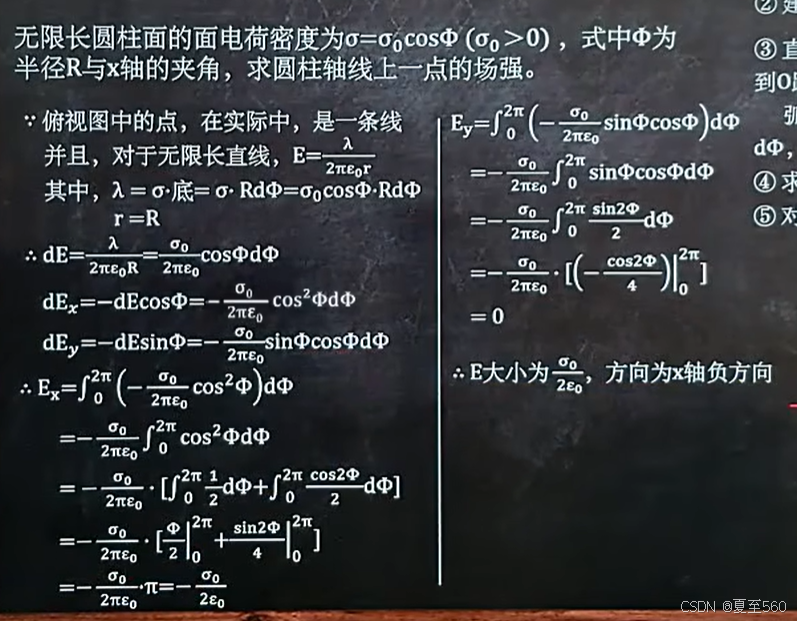 无限长圆柱面的面电荷密度为σ=σ₀cosΦ (σ₀>0) ，式中Φ为
半径R与x轴的夹角，求圆柱轴线上一点的场强。
∵ 俯视图中的点，在实际中，是一条线
并且，对于无限长直线，E=λ/2πε₀r
其中，λ = σ·底= σ· RdΦ=σ₀cosΦ·RdΦ
r =R
∴ dE=λ/2πε₀R=σ₀/2πε₀ cosΦdΦ
dEₓ=−dEcosΦ=−σ₀/2πε₀ cos²ΦdΦ
dEᵧ=−dEsinΦ=−σ₀/2πε₀ sinΦcosΦdΦ
∴ Eₓ=∫₀²π (−σ₀/2πε₀ cos²Φ)dΦ
=−σ₀/2πε₀ ∫₀²π cos²ΦdΦ
= −σ₀/2πε₀ · [∫₀²π 1/2 dΦ+∫₀²π cos2Φ/2 dΦ]
=−σ₀/2πε₀ · [Φ/2|₀²π+sin2Φ/4|₀²π]
=−σ₀/2πε₀ ·π=−σ₀/2ε₀
Eᵧ=∫₀²π (−σ₀/2πε₀ sinΦcosΦ)dΦ
=−σ₀/2πε₀ ∫₀²π sinΦcosΦdΦ
=−σ₀/2πε₀ ∫₀²π sin2Φ/2 dΦ
=−σ₀/2πε₀ · [(−cos2Φ/4)|₀²π]
= 0
∴ E大小为σ₀/2ε₀，方向为x轴负方向
②
③ 直
到O
dΦ，
④ 求
⑤ 对
CSDN @夏至560